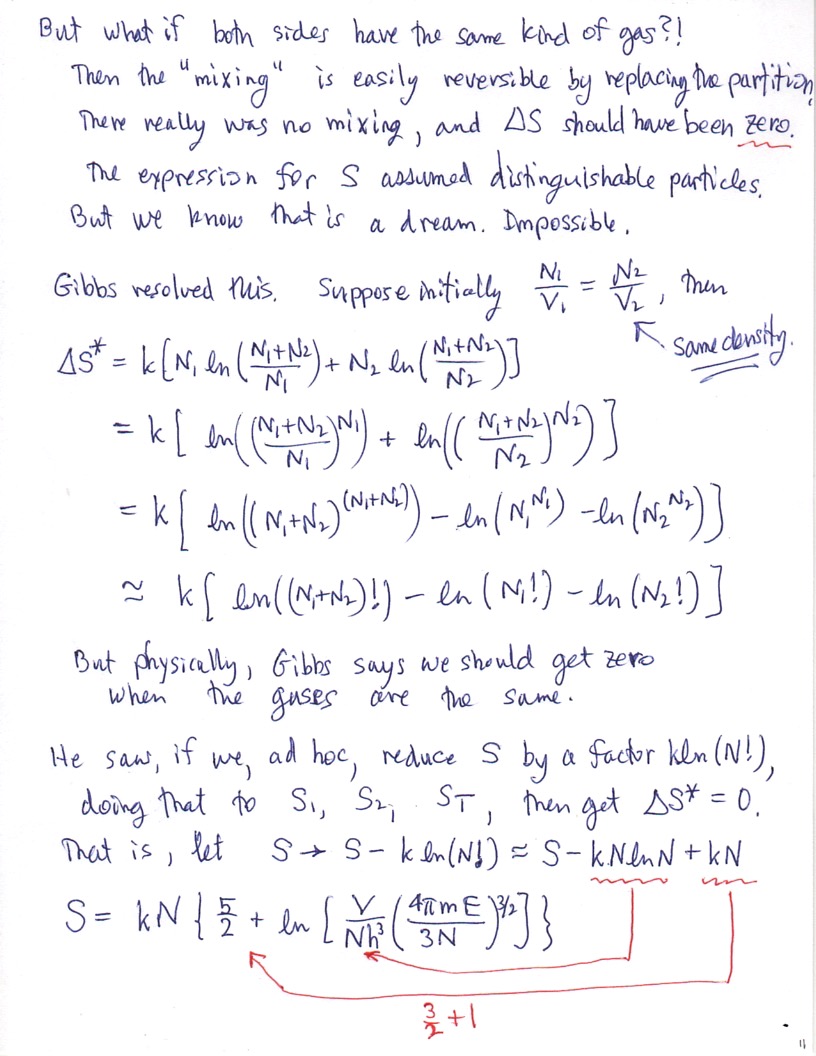 But what if both sides have the same kind of gas?!
Then the "mixing" is easily reversible by replacing the partition.
There really was no mixing, and ΔS should have been zero.
The expression for S assumed distinguishable particles.
But we know that is a dream. Impossible.
Gibbs resolved this. Suppose initially N₁/V₁ = N₂/V₂, then
same density.
ΔS* = k[N₁ ln((N₁+N₂)/N₁) + N₂ ln((N₁+N₂)/N₂)]
= k[ ln(((N₁+N₂)/N₁)^N₁) + ln(((N₁+N₂)/N₂)^N₂) ]
= k[ ln((N₁+N₂)^(N₁+N₂)) − ln(N₁^N₁) − ln(N₂^N₂) ]
≃ k[ ln((N₁+N₂)!) − ln(N₁!) − ln(N₂!) ]
But physically, Gibbs says we should get zero
when the gases are the same.
He saw, if we, ad hoc, reduce S by a factor kln(N!),
doing that to S₁, S₂, S_T, then get ΔS* = 0.
That is, let S → S − k ln(N!) ≈ S − kNlnN + kN
S = kN { 5/2 + ln [ V/(Nh³) (4πmE/3N)^3/2 ] }
3/2 + 1
11